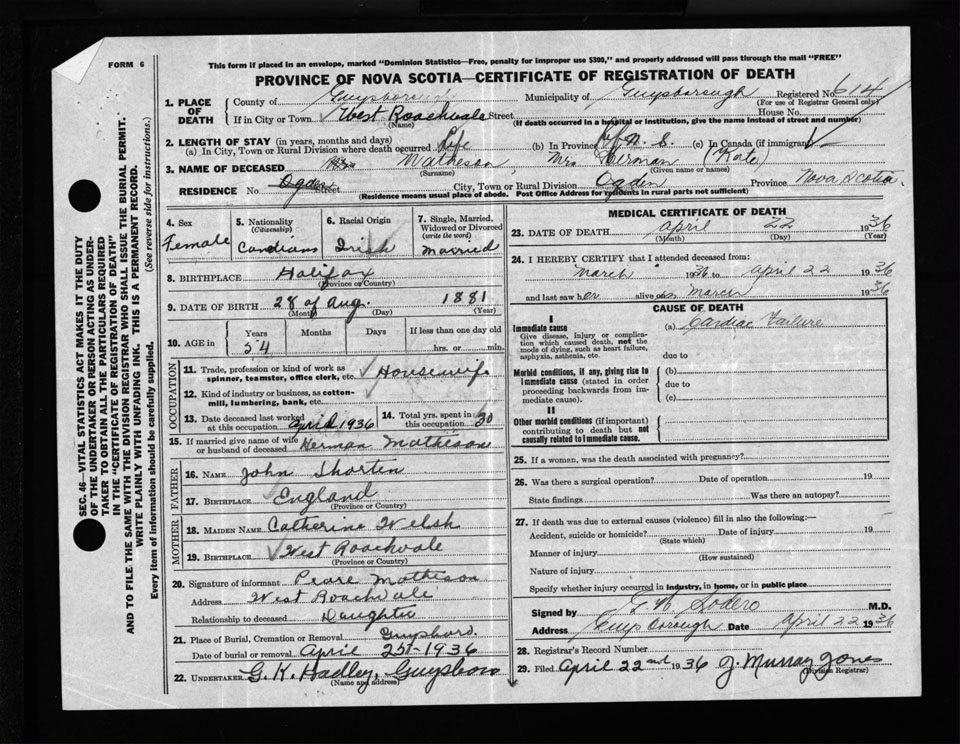 FORM 6
This form if placed in an envelope, marked "Dominion Statistics—Free, penalty for improper use $300," and properly addressed will pass through the mail "FREE"
PROVINCE OF NOVA SCOTIA—CERTIFICATE OF REGISTRATION OF DEATH
1. PLACE OF DEATH
County of Guysborough Municipality of Guysborough Registered No. 614
(For use of Registrar General only)
If in City or Town West Roachvale Street House No.
(Name) (If death occurred in a hospital or institution, give the name instead of street and number)
2. LENGTH OF STAY (in years, months and days)
(a) In City, Town or Rural Division where death occurred Life (b) In Province N. S. (c) In Canada (if immigrant)
3. NAME OF DECEASED Matheson, Mrs Herman (Kate)
(Surname) (Given name or names)
RESIDENCE No. Ogden Street City, Town or Rural Division Ogden Province Nova Scotia
(Residence means usual place of abode. Post Office Address for residents in rural parts not sufficient)
4. Sex
Female
5. Nationality
(Citizenship)
Candians
6. Racial Origin
Irish
7. Single, Married, Widowed or Divorced
(write the word)
Married
8. BIRTHPLACE Halifax
(Province or Country)
9. DATE OF BIRTH 28 of Aug. 1881
(Month) (Day) (Year)
10. AGE in
Years Months Days If less than one day old
54 hrs. or min.
OCCUPATION
11. Trade, profession or kind of work as spinner, teamster, office clerk, etc. Housewife
12. Kind of industry or business, as cotton-mill, lumbering, bank, etc.
13. Date deceased last worked at this occupation April 1936
14. Total yrs. spent in this occupation 30
15. If married give name of wife or husband of deceased Herman Matheson
FATHER
16. NAME John Shorten
17. BIRTHPLACE England
(Province or Country)
MOTHER
18. MAIDEN NAME Catherine Welsh
19. BIRTHPLACE West Roachvale
(Province or Country)
20. Signature of informant Pearl Matheson
Address West Roachvale
Relationship to deceased Daughter
21. Place of Burial, Cremation or Removal Guysboro.
Date of burial or removal April 25t-1936
22. UNDERTAKER G. K. Hadley, Guysboro
(Name and address)
MEDICAL CERTIFICATE OF DEATH
23. DATE OF DEATH April 22 1936
(Month) (Day) (Year)
24. I HEREBY CERTIFY that I attended deceased from:
March 1936 to April 22 1936
and last saw her alive on March 1936
CAUSE OF DEATH
I
Immediate cause
Give disease, injury or complication which caused death, not the mode of dying, such as heart failure, asphyxia, asthenia, etc.
(a) Cardiac Failure
due to
Morbid conditions, if any, giving rise to immediate cause (stated in order proceeding backwards from immediate cause).
(b)
due to
(c)
II
Other morbid conditions (if important) contributing to death but not causally related to immediate cause.
25. If a woman, was the death associated with pregnancy?
26. Was there a surgical operation? Date of operation 19
State findings Was there an autopsy?
27. If death was due to external causes (violence) fill in also the following:—
Accident, suicide or homicide? Date of injury 19
(State which)
Manner of injury
(How sustained)
Nature of injury
Specify whether injury occurred in Industry, in home, or in public place
Signed by G B Sodero M.D.
Address Guysborough Date April 22 1936
28. Registrar's Record Number
29. Filed April 22nd 1936 J. Murray Jones
(Division Registrar)
SEC. 46—VITAL STATISTICS ACT MAKES IT THE DUTY
OF THE UNDERTAKER OR PERSON ACTING AS UNDER-
TAKER TO OBTAIN ALL THE PARTICULARS REQUIRED
IN THE "CERTIFICATE OF REGISTRATION OF DEATH"
AND TO FILE THE SAME WITH THE DIVISION REGISTRAR WHO SHALL ISSUE THE BURIAL PERMIT.
WRITE PLAINLY WITH UNFADING INK. THIS IS A PERMANENT RECORD.
Every item of information should be carefully supplied. (See reverse side for instructions.)